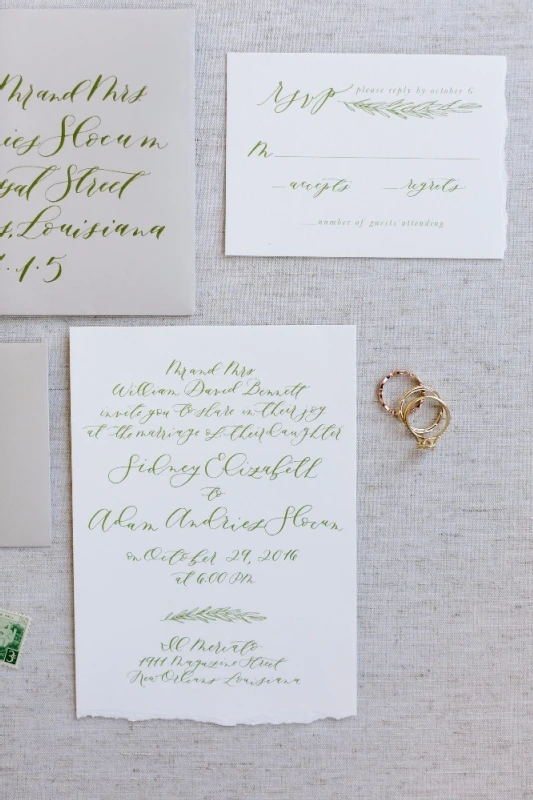 Mr and Mrs
ies Slocum
yal Street
s, Louisiana
1.1.5
rsvp
please reply by october 6
M
accepts regrets
number of guests attending
Mr and Mrs
William David Bennett
invite you to share in their joy
at the marriage of their daughter
Sidney Elizabeth
to
Adam Andries Slocum
on October 29, 2016
at 6:00 PM
Il Mercato
1911 Magazine Street
New Orleans Louisiana
3